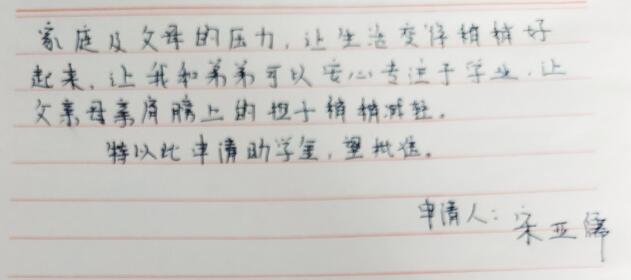 家庭及父母的压力，让生活变得稍稍好
起来，让我和弟弟可以安心专注于学业，让
父亲母亲肩膀上的担子稍稍减轻。
特以此申请助学金，望批准。
申请人：宋亚儒